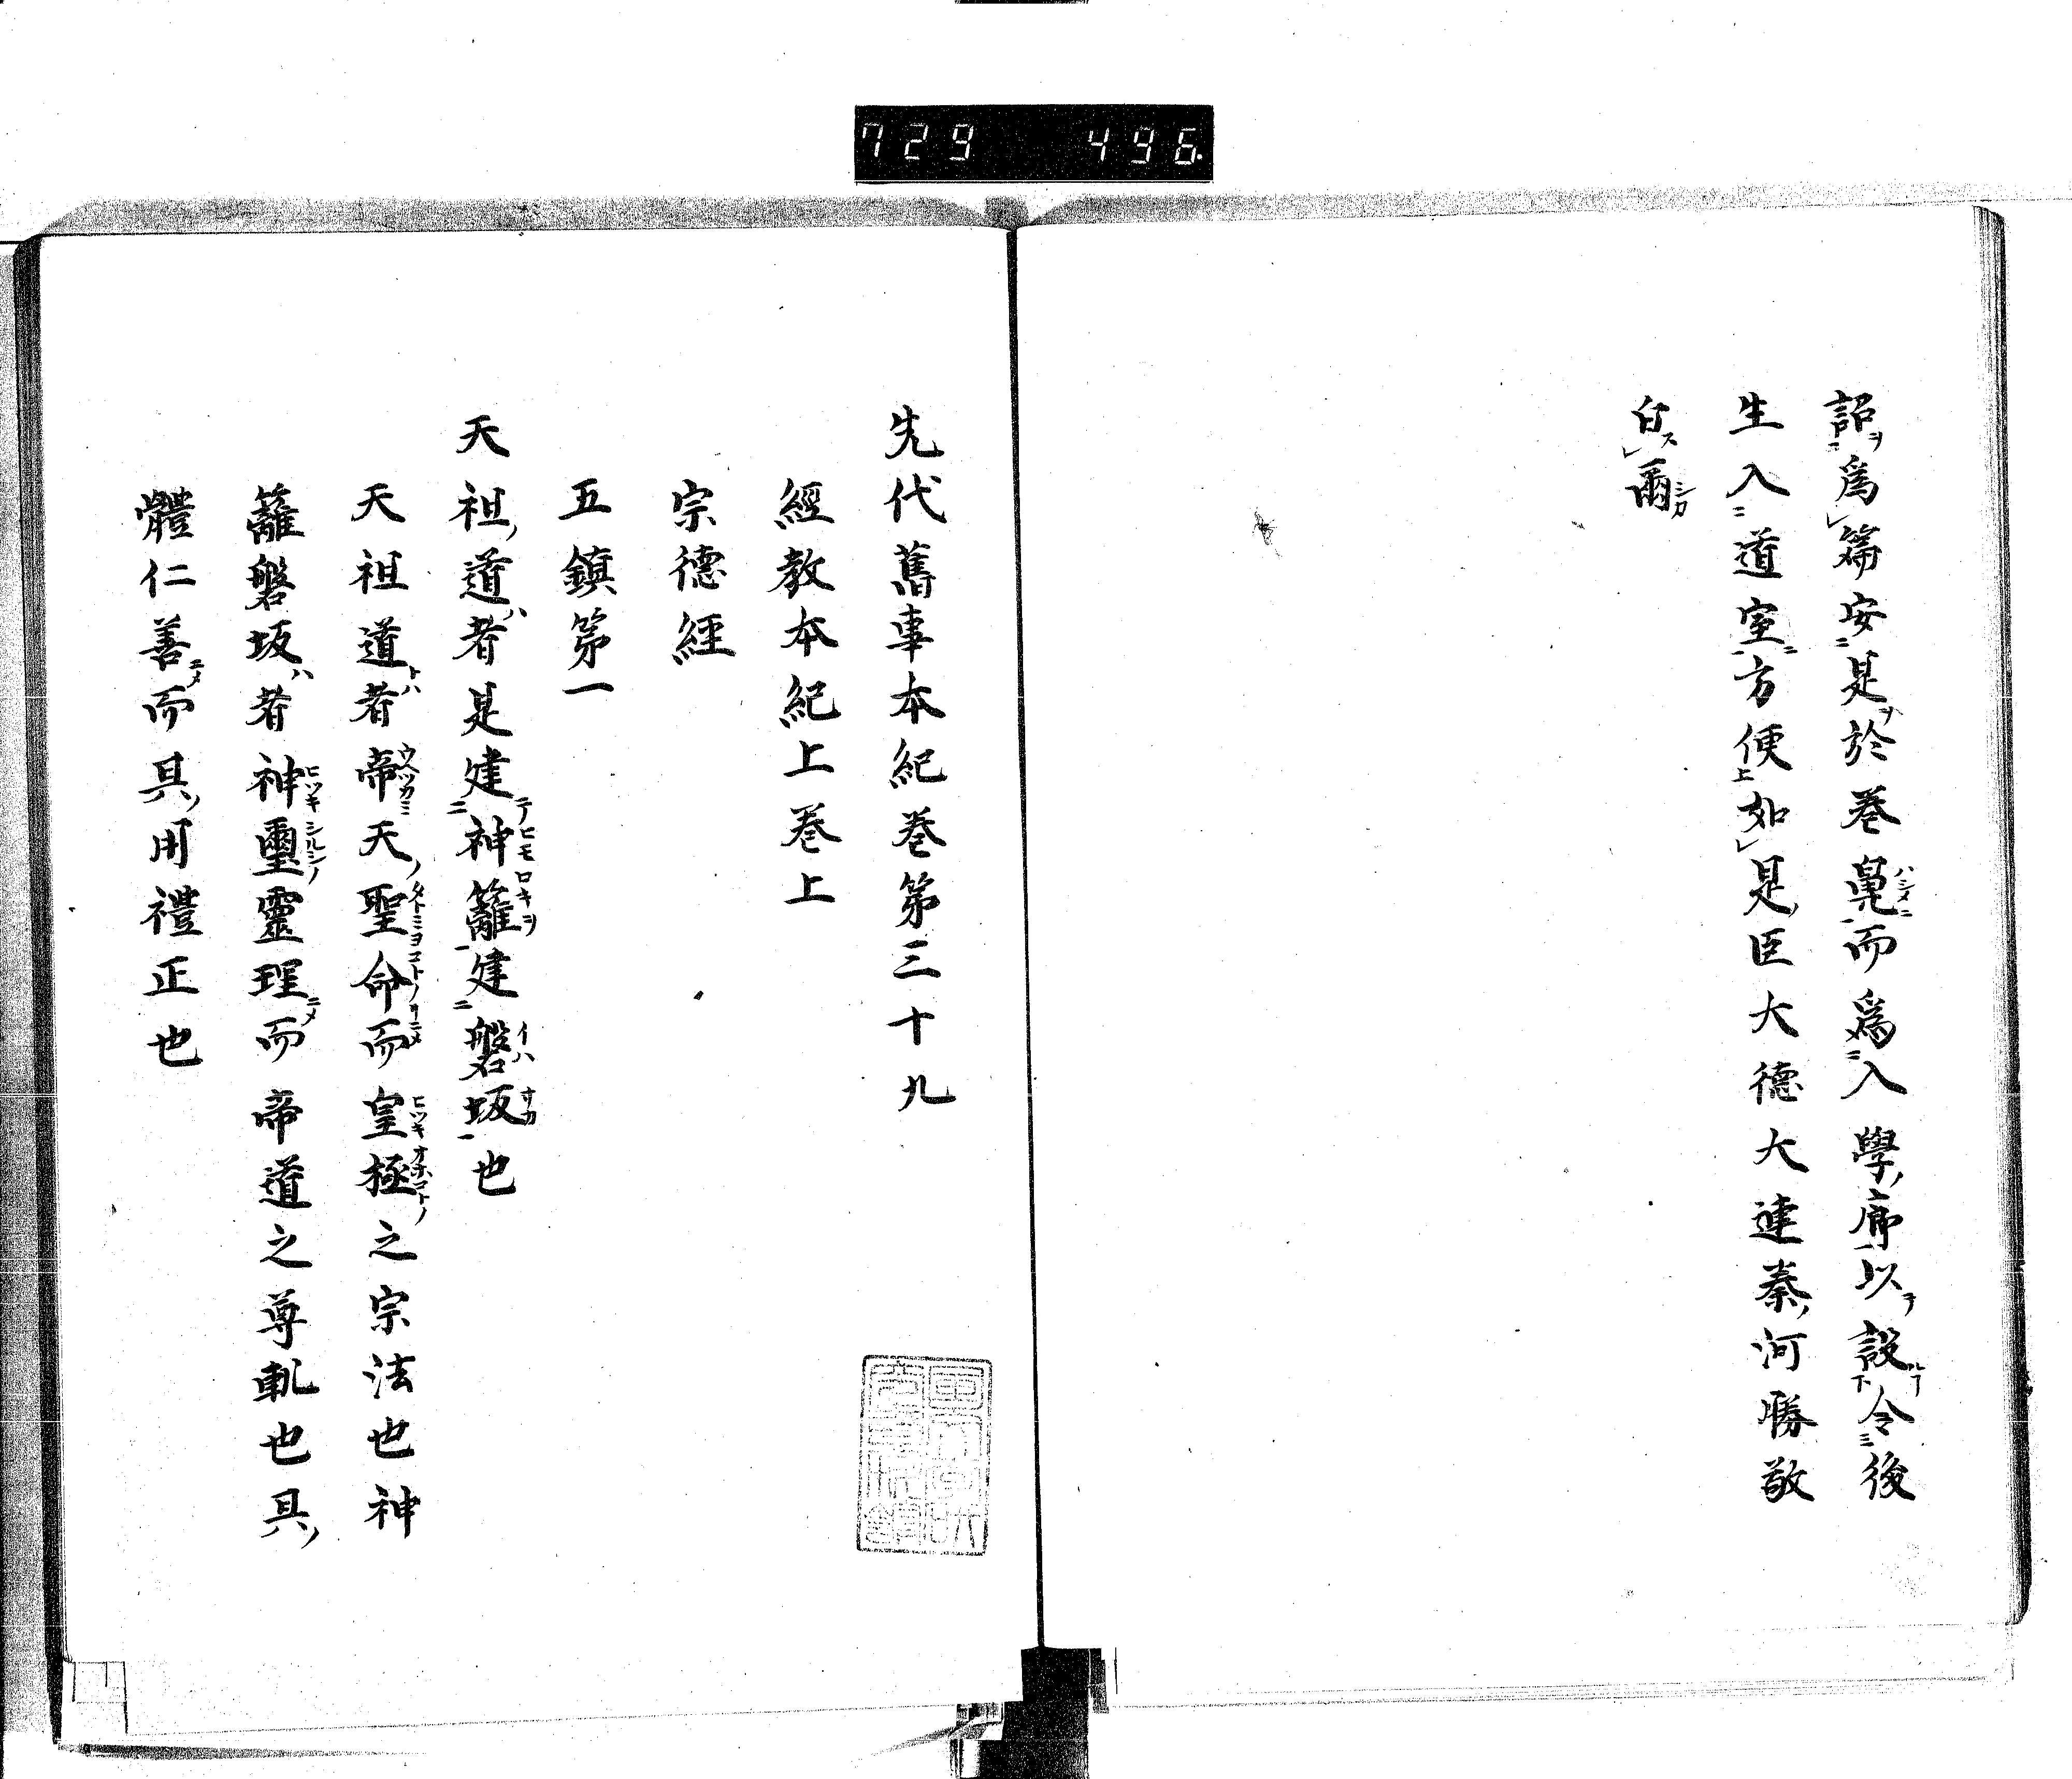 729 496.
詔為篇安是於巻鳧而為入學廓以設令後
生入道室方便如是臣大德大連秦河勝敬
白爾
先代舊事本紀巻第三十九
經教本紀上巻上
宗德經
五鎮第一
天祖道者是建神籬建磐坂也
天祖道者帝天聖命而皇極之宗法也神
籬磐坂者神璽靈理而帝道之尊軌也具
體仁善而具用禮正也